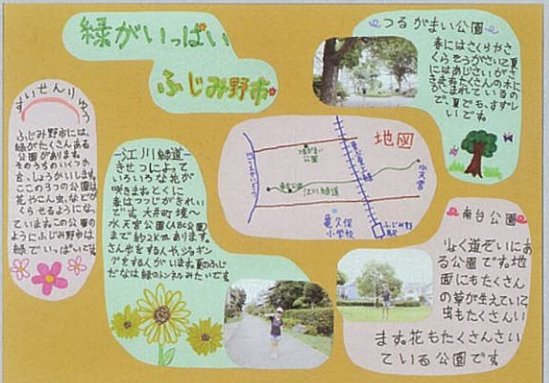 緑がいっぱい
ふじみ野市
すいせんりゆう
ふじみ野市には、
緑がたくさんある
公園があります。
そのうちのいくつか
を、しょうかいします。
ここの3つの公園は
花やこん虫などが
くらせるようになっ
ています。この公園の
ようにふじみ野市は
緑でいっぱいです
江川緑道
きせつによって
いろいろな花が
咲きます。とくに
春はつつじがきれい
です。大井町境〜
水天宮公園(ABC公園)
まで約2kmあります。
さん歩をする人や、ジョギン
グをする人がいます。夏のふじ
だなは緑のトンネルみたいです
つるがまい公園
春にはさくらやさ
くらそうがさいて夏
にはあじさいがさ
きます。たくさんの木に
かこまれているの
で、夏でもすずし
いです。
地図
つるがまい
公園
江川緑道
水天宮
亀久保
小学校
ふじみ野
駅
南台公園
りょく道ぞいにあ
る公園です。地
面にもたくさん
の草が生えていて
虫もたくさんい
ます。花もたくさんさい
ている公園です